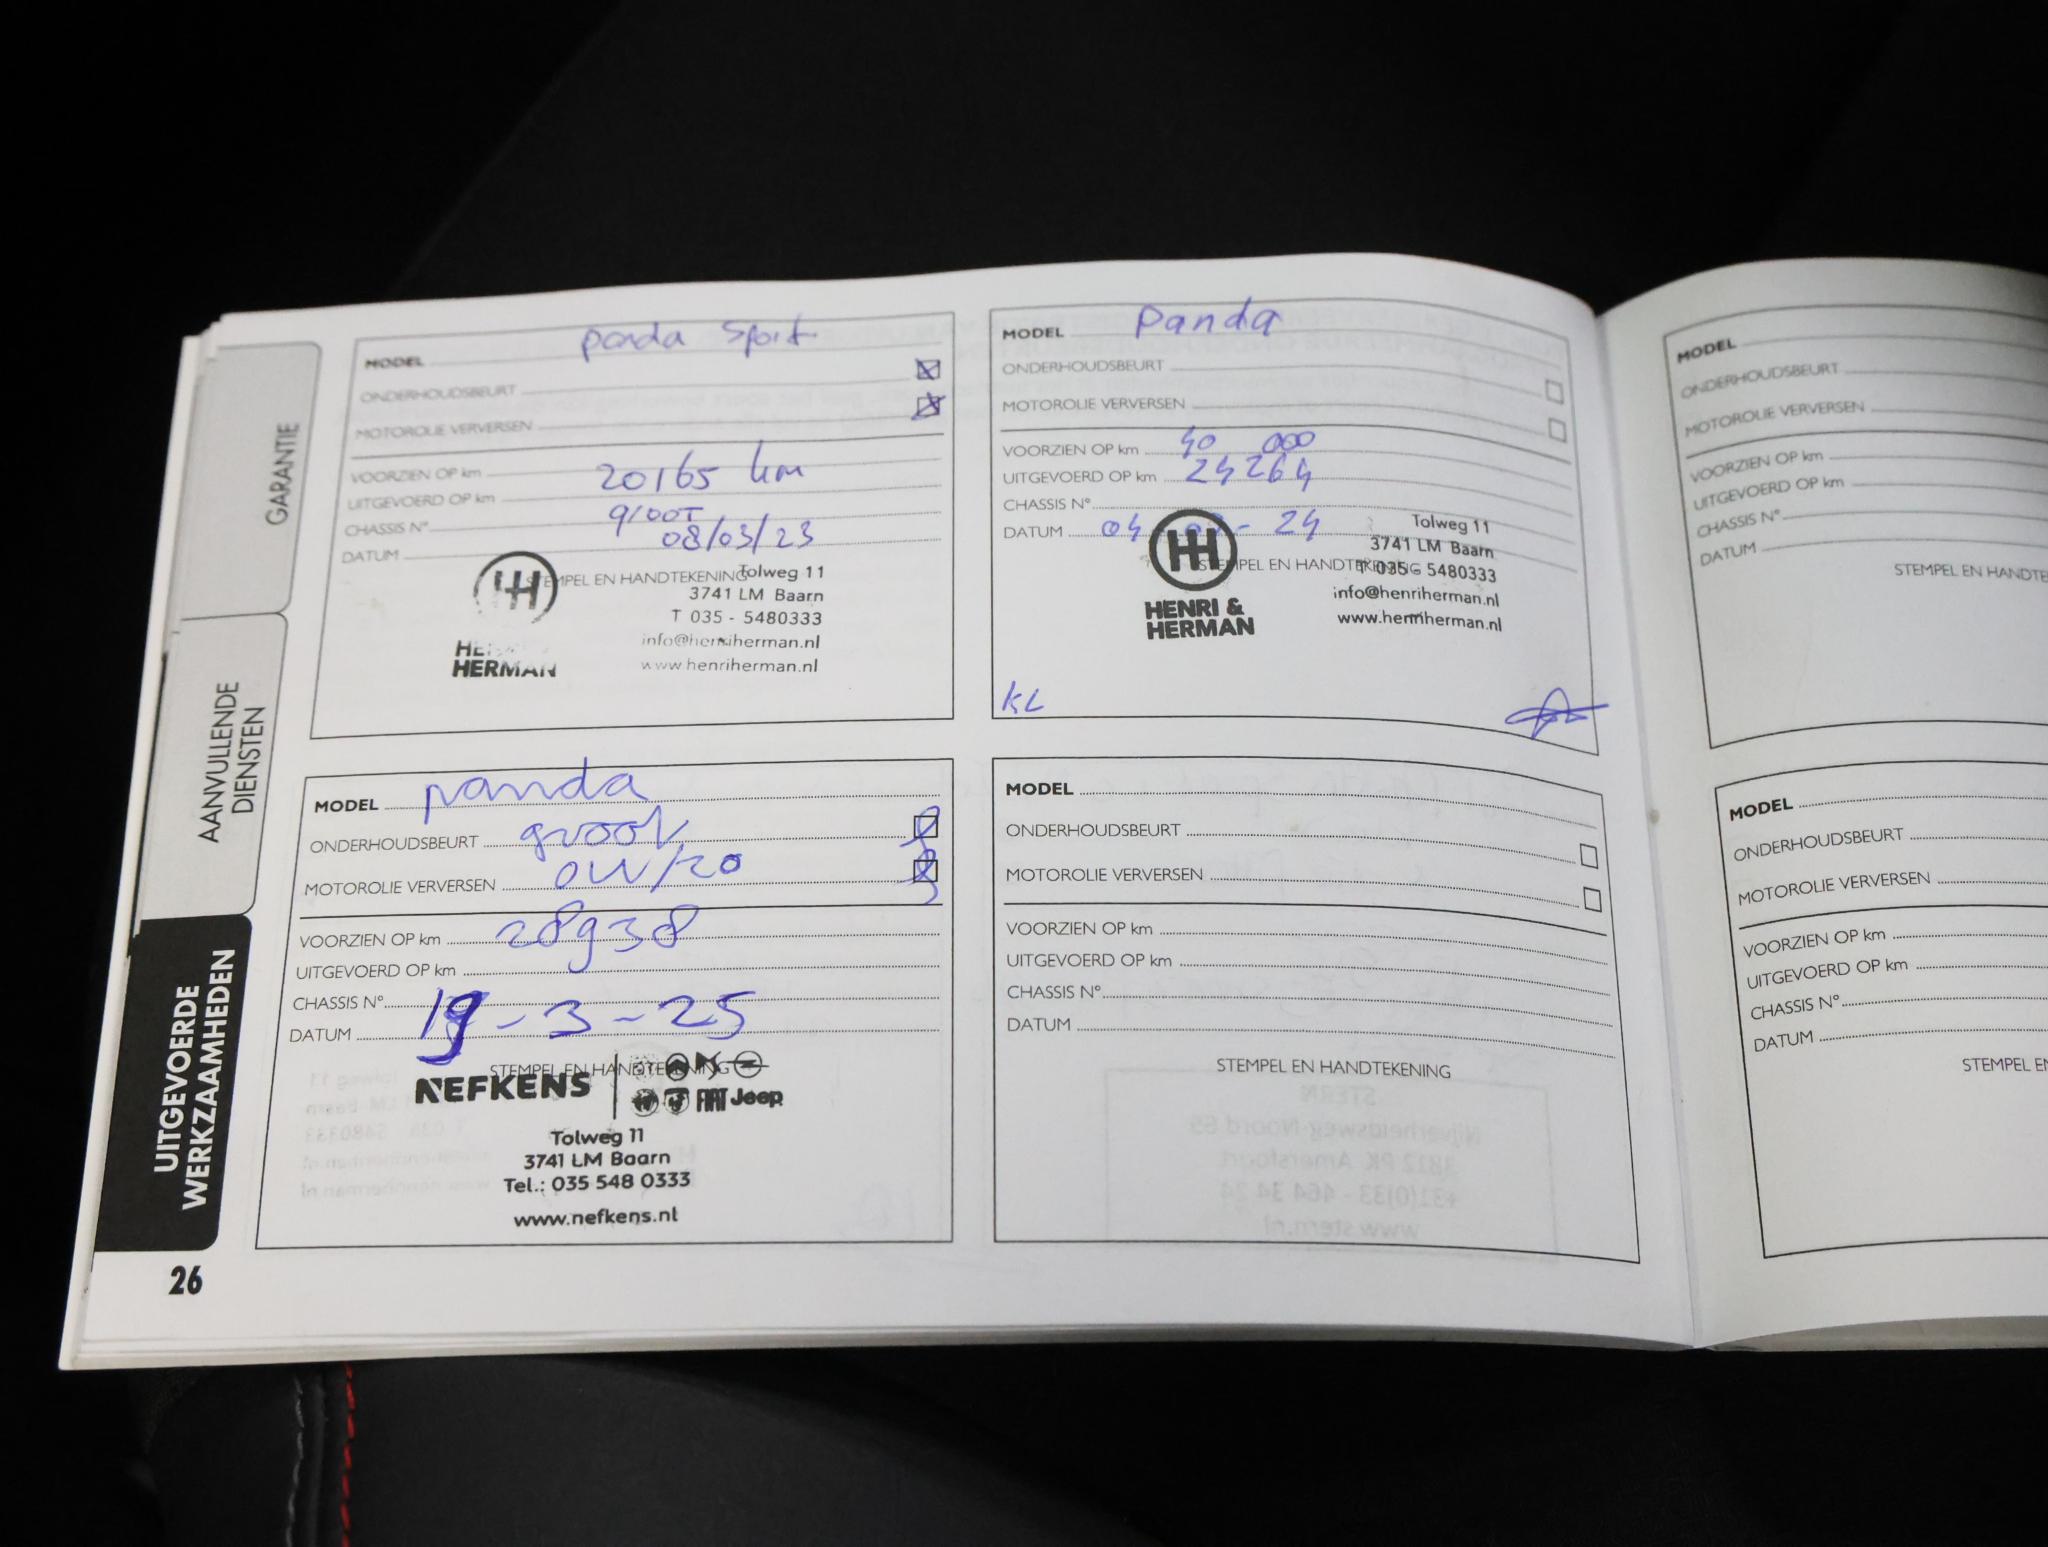 GARANTIE
AANVULLENDE
DIENSTEN
UITGEVOERDE
WERKZAAMHEDEN
26
MODEL panda Sport
ONDERHOUDSBEURT
MOTOROLIE VERVERSEN
VOORZIEN OP km 20165 km
UITGEVOERD OP km
CHASSIS N°
DATUM 08/03/23
STEMPEL EN HANDTEKENING
Tolweg 11
3741 LM Baarn
T 035 - 5480333
info@henriherman.nl
www.henriherman.nl
HERMAN
MODEL Panda
ONDERHOUDSBEURT
MOTOROLIE VERVERSEN
VOORZIEN OP km 40 000
UITGEVOERD OP km 24264
CHASSIS N°
DATUM 04 - 24
STEMPEL EN HANDTEKENING
HENRI &
HERMAN
Tolweg 11
3741 LM Baarn
T 035 - 5480333
info@henriherman.nl
www.henriherman.nl
KL
MODEL panda
ONDERHOUDSBEURT groot
MOTOROLIE VERVERSEN 0W/20
VOORZIEN OP km 28938
UITGEVOERD OP km
CHASSIS N°
DATUM 19-3-25
STEMPEL EN HANDTEKENING
NEFKENS
FIAT Jeep
Tolweg 11
3741 LM Baarn
Tel.: 035 548 0333
www.nefkens.nl
MODEL
ONDERHOUDSBEURT
MOTOROLIE VERVERSEN
VOORZIEN OP km
UITGEVOERD OP km
CHASSIS N°
DATUM
STEMPEL EN HANDTEKENING
MODEL
ONDERHOUDSBEURT
MOTOROLIE VERVERSEN
VOORZIEN OP km
UITGEVOERD OP km
CHASSIS N°
DATUM
STEMPEL EN HANDTE
MODEL
ONDERHOUDSBEURT
MOTOROLIE VERVERSEN
VOORZIEN OP km
UITGEVOERD OP km
CHASSIS N°
DATUM
STEMPEL EN